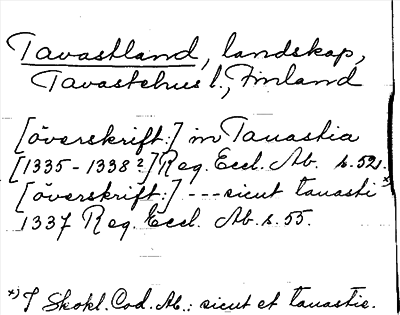 Tavastland, landskap,
Tavastehus l., Finland
[överskrift:] in Tauastia
[1335-1338?] Reg. Eccl. Ab. s. 52.
[överskrift:] ---sicut tauasti*)
1337 Reg. Eccl. Ab. s. 55.
*) I Skokl. Cod. Ab.: sicut et tauastie.